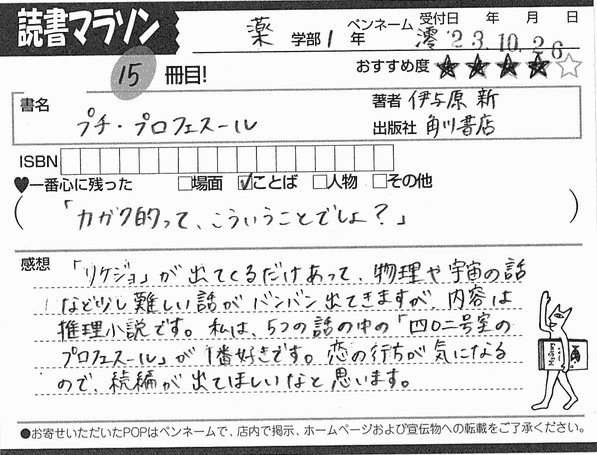 読書マラソン
薬 学部 1 年 ペンネーム 澪 受付日 年 月 日 '23.10.26
15 冊目! おすすめ度 ★★★★☆
書名 プチ・プロフェスール
著者 伊与原 新
出版社 角川書店
ISBN
♥一番心に残った □場面 ☑ことば □人物 □その他
(「カガク的って、こういうことでしょ?」)
感想
「リケジョ」が出てくるだけあって、物理や宇宙の話
など少し難しい話がバンバン出てきますが、内容は
推理小説です。私は、5つの話の中の「四〇二号室の
プロフェスール」が1番好きです。恋の行方が気になる
ので、続編が出てほしいなと思います。
●お寄せいただいたPOPはペンネームで、店内で掲示、ホームページおよび宣伝物への転載をご了承ください。